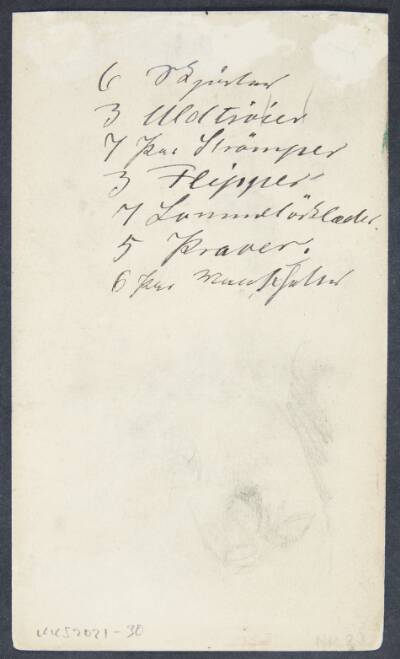 6 Skjorter
3 Uldtröier
7 Par Strömper
3 Flipper
7 Lommetörklæder.
5 Kraver.
6 Par Manschetter
KKS2021-30